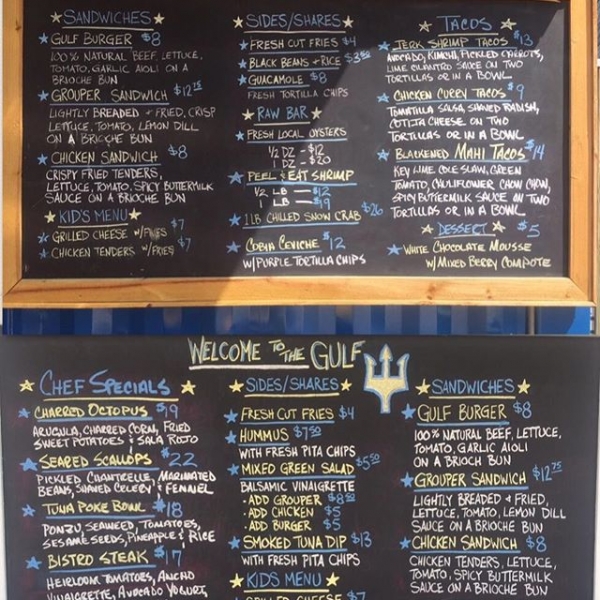 SANDWICHES
GULF BURGER $8
100% NATURAL BEEF, LETTUCE,
TOMATO, GARLIC AIOLI ON A
BRIOCHE BUN
GROUPER SANDWICH $12.75
LIGHTLY BREADED + FRIED, CRISP
LETTUCE, TOMATO, LEMON DILL
ON A BRIOCHE BUN
CHICKEN SANDWICH $8
CRISPY FRIED TENDERS,
LETTUCE, TOMATO, SPICY BUTTERMILK
SAUCE ON A BRIOCHE BUN
KIDS MENU
GRILLED CHEESE W/FRIES $7
CHICKEN TENDERS W/FRIES $7
SIDES/SHARES
FRESH CUT FRIES $4
BLACK BEANS + RICE $3.50
GUACAMOLE $8
FRESH TORTILLA CHIPS
RAW BAR
FRESH LOCAL OYSTERS
1/2 DZ - $12
1 DZ - $20
PEEL & EAT SHRIMP
1/2 LB - $12
1 LB - $19
1LB CHILLED SNOW CRAB $26
COBIA CEVICHE $12
W/PURPLE TORTILLA CHIPS
TACOS
JERK SHRIMP TACOS $13
AVOCADO, KIMCHI, PICKLED CARROTS,
LIME CILANTRO SAUCE ON TWO
TORTILLAS OR IN A BOWL
CHICKEN CURRY TACOS $9
TOMATILLA SALSA, SHAVED RADISH,
COTIJA CHEESE ON TWO
TORTILLAS OR IN A BOWL
BLACKENED MAHI TACOS $14
KEY LIME COLE SLAW, GREEN
TOMATO, CAULIFLOWER CHOW CHOW,
SPICY BUTTERMILK SAUCE ON TWO
TORTILLAS OR IN A BOWL
DESSERT $5
WHITE CHOCOLATE MOUSSE
W/MIXED BERRY COMPOTE
WELCOME TO THE GULF
CHEF SPECIALS
CHARRED OCTOPUS $19
ARUGULA, CHARRED CORN, FRIED
SWEET POTATOES & SALA ROJO
SEARED SCALLOPS $22
PICKLED CHANTRELLE, MARINATED
BEANS, SHAVED CELERY & FENNEL
TUNA POKE BOWL $18
PONZU, SEAWEED, TOMATOES,
SESAME SEEDS, PINEAPPLE & RICE
BISTRO STEAK $17
HEIRLOOM TOMATOES, ANCHO
VINAIGRETTE, AVOCADO YOGURT,
SIDES/SHARES
FRESH CUT FRIES $4
HUMMUS $7.50
WITH FRESH PITA CHIPS
MIXED GREEN SALAD $5.50
BALSAMIC VINAIGRETTE
- ADD GROUPER $8.50
- ADD CHICKEN $5
- ADD BURGER $5
SMOKED TUNA DIP $13
WITH FRESH PITA CHIPS
KIDS MENU
GRILLED CHEESE $7
SANDWICHES
GULF BURGER $8
100% NATURAL BEEF, LETTUCE,
TOMATO, GARLIC AIOLI
ON A BRIOCH BUN
GROUPER SANDWICH $12.75
LIGHTLY BREADED + FRIED,
LETTUCE, TOMATO, LEMON DILL
SAUCE ON A BRIOCHE BUN
CHICKEN SANDWICH $8
CHICKEN TENDERS, LETTUCE,
TOMATO, SPICY BUTTERMILK
SAUCE ON A BRIOCHE BUN